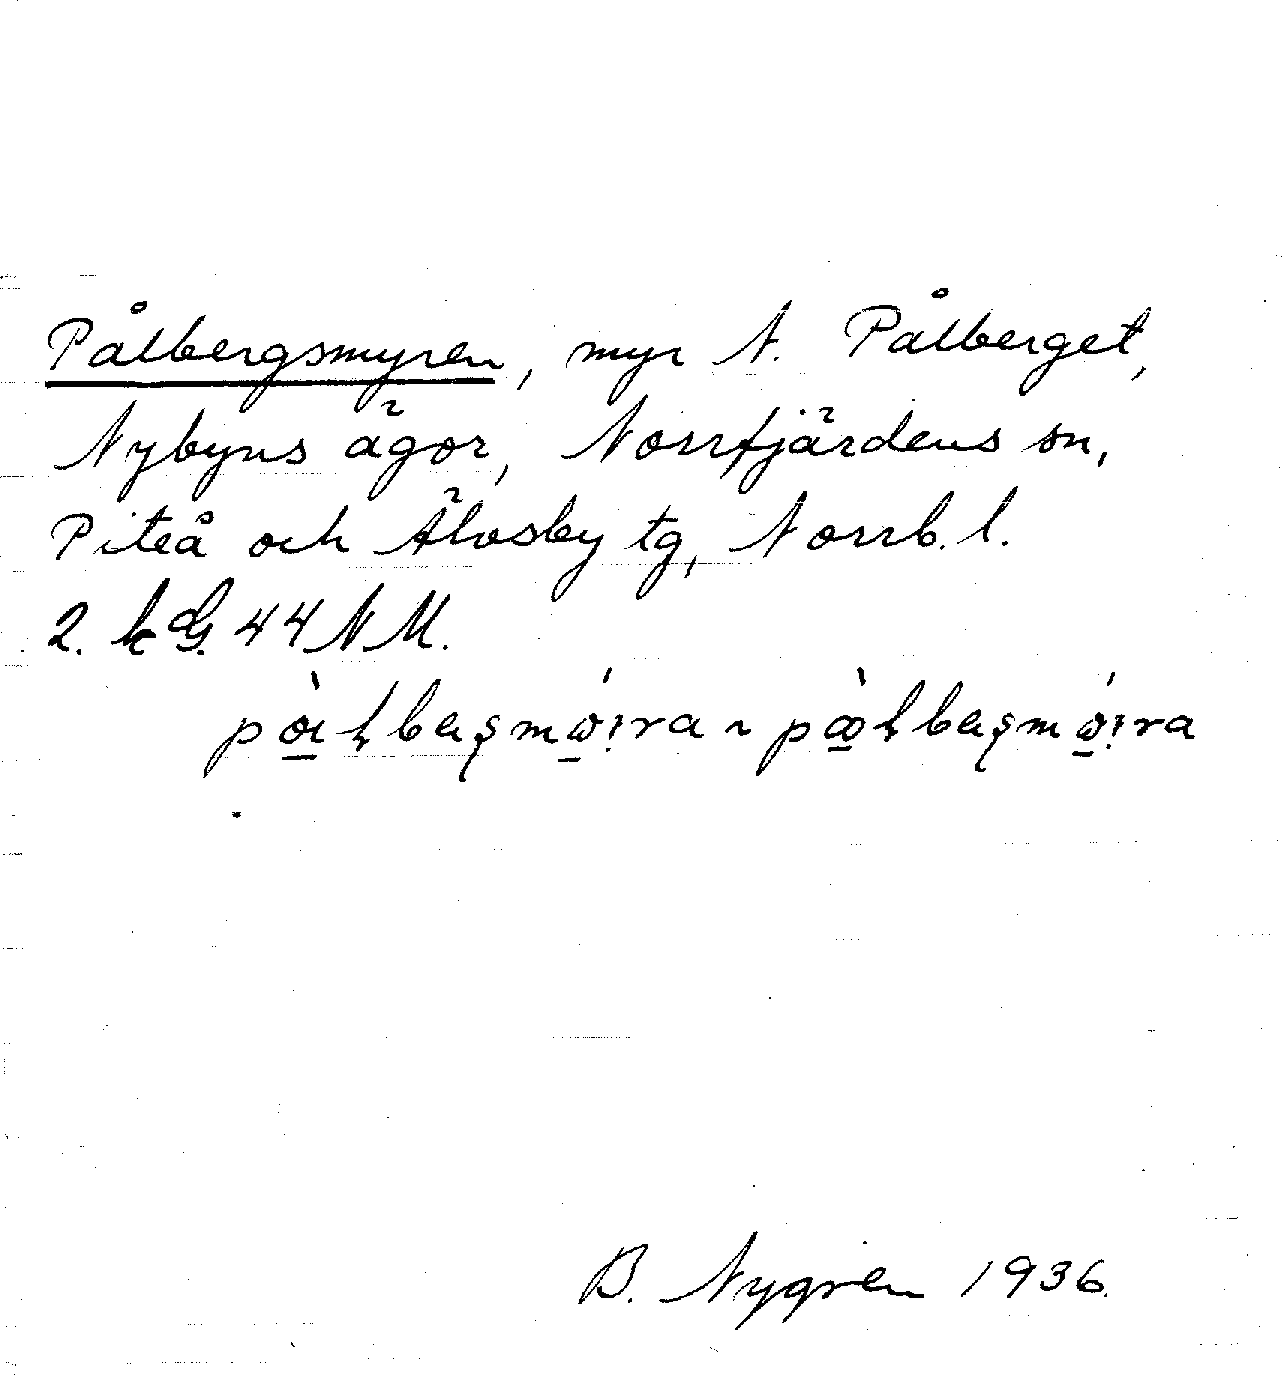 Pålbergsmyren, myr N. Pålberget,
Nybyns ägor, Norrfjärdens sn,
Piteå och Älvsby tg, Norrb. l.
2. kG. 44 NM.
B. Nygren 1936.